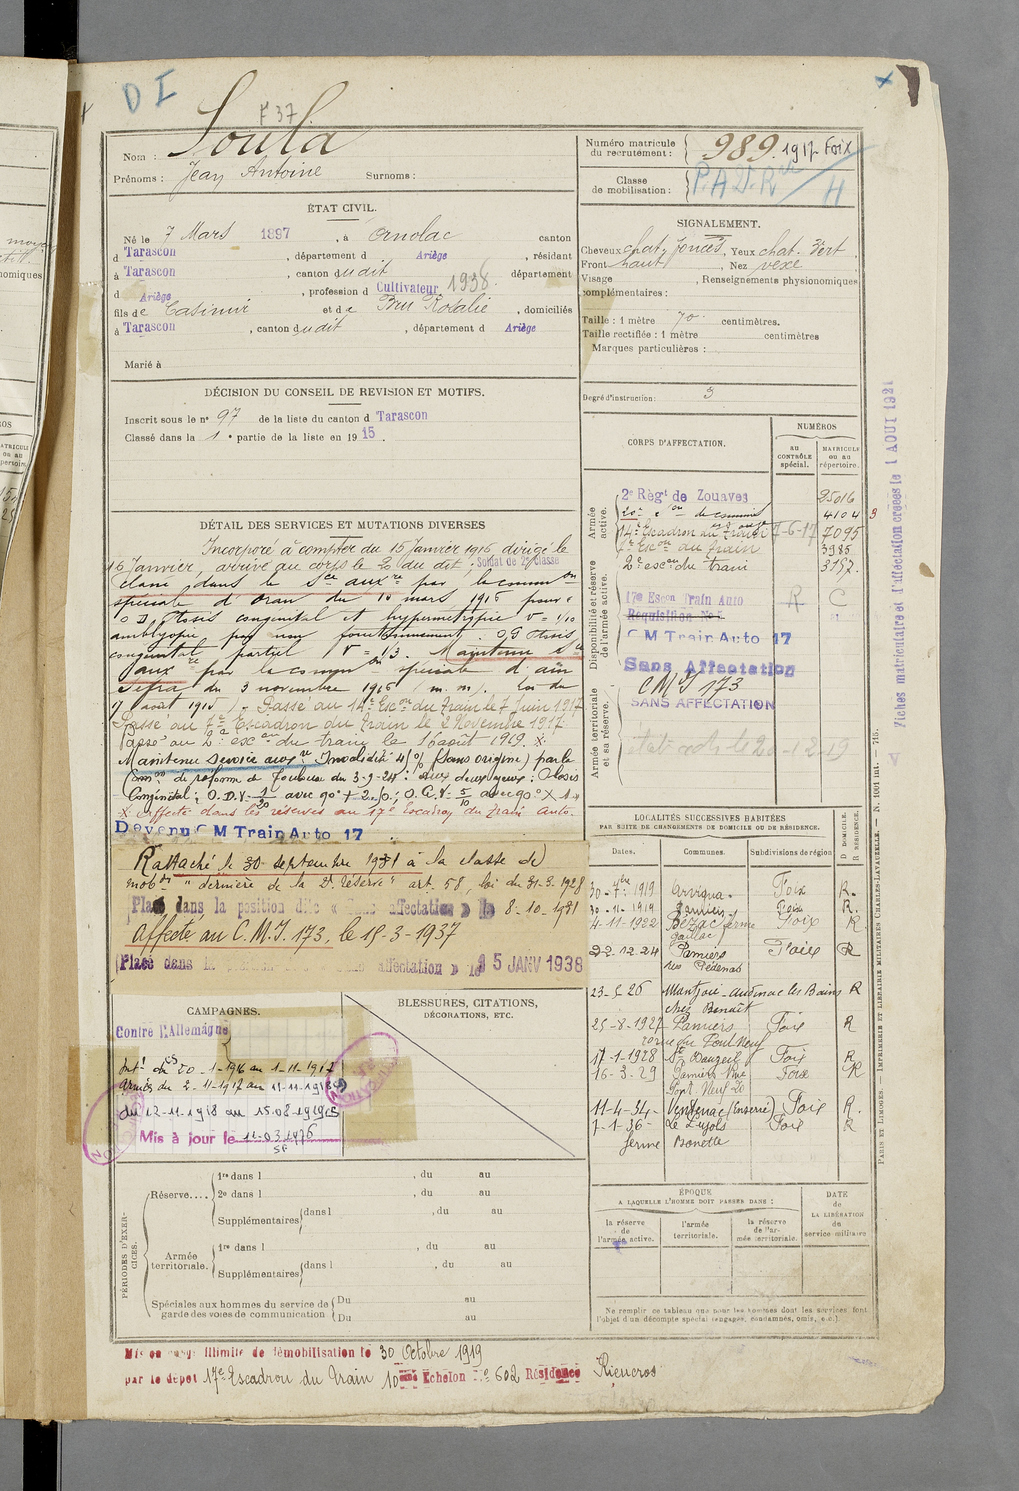 D I
F 37
Nom : Soula
Prénoms : Jean Antoine Surnoms :
Numéro matricule du recrutement : 989. 1917 Foix
Classe de mobilisation : P.A.D.R H
ÉTAT CIVIL.
Né le 7 Mars 1897, à Ornolac canton
d Tarascon, département d Ariège, résidant
à Tarascon, canton dudit département
d Ariège, profession d Cultivateur 1938
fils de Casimir et de Bru Rosalie, domiciliés
à Tarascon, canton dudit, département d Ariège
Marié à
SIGNALEMENT.
Cheveux chat. foncés, Yeux chat. Vert
Front haut, Nez vexe
Visage , Renseignements physionomiques
complémentaires :
Taille : 1 mètre 70 centimètres.
Taille rectifiée : 1 mètre centimètres
Marques particulières :
Degré d'instruction : 3
DÉCISION DU CONSEIL DE REVISION ET MOTIFS.
Inscrit sous le n° 97 de la liste du canton d Tarascon
Classé dans la 1e partie de la liste en 1915.
DÉTAIL DES SERVICES ET MUTATIONS DIVERSES
Incorporé à compter du 15 Janvier 1916 dirigé le
16 Janvier, arrivé au corps le 20 du dit. Soldat de 2e classe
Classé dans le Sce auxre par la common
spéciale d'Oran du 10 mars 1916 pour :
O D, Ptosis congenital et hypermétropie V = 1/10
amblyopie par non fonctionnement. O G Ptosis
congenital partiel V = 1/3. Maintenu Sce
auxre par la common spéciale d'aïn
Sefra du 3 novembre 1916 (m. m). Loi du
17 août 1915). Passé au 14e Escon du Train le 7 Juin 1917
Passé au 7e Escadron du Train le 2 Novembre 1917.
Passé au 2e escon du train le 16 août 1919. X
Maintenu Service auxre Invalidité 4 % (sans origine) par la
Comon de réforme de Toulouse du 3-9-24 : aux deux yeux : Ptosis
Congénital ; O.D.V = 1/20 avec 90° + 2. ; O.G.V = 5/10 avec 90° X 1
X affecté dans les réserves au 17e Escadron du Train Auto.
Devenu C M Train Auto 17
Rattaché le 30 septembre 1931 à la classe de
mobon "dernière de la 2e réserve" art. 58, loi du 31-3-1928
Placé dans la position dite « sans affectation » le 8-10-1931
affecté au C.M.I. 173, le 15-3-1937
Placé dans la affectation » le 15 JANV 1938
CORPS D'AFFECTATION.
NUMÉROS
au CONTRÔLE spécial.
MATRICULE ou au répertoire.
Armée active.
2e Règt de Zouaves 25016
20e don de commis 4104 3
14e Escadron du Train 7-6-17 7095
7e Escon du Train 3985
2e escon du train 3157.
Disponibilité et réserve de l'armée active.
17e Escon Train Auto R C
Requisition No
C M Train Auto 17
Sans Affectation
Armée territoriale et sa réserve.
C.M.I 173
SANS AFFECTATION
LOCALITÉS SUCCESSIVES HABITÉES
PAR SUITE DE CHANGEMENTS DE DOMICILE OU DE RÉSIDENCE.
Dates. Communes. Subdivisions de région D DOMICILE. R RÉSIDENCE.
30-7bre 1919 Arvigna. Foix R.
30-11-1919 Pamiers Foix R.
4-11-1922 Bézac ferme Gaillac Foix R
22.12.24 Pamiers rue Piédenas Foix R
23-5-26 Montjoie-Audinac les Bains R
chez Benaït
25-8-1927 Pamiers Foix R
rue du Pont Neuf
17-1-1928 St Bauzeil Foix R
16-3-29 Pamiers Rue Pont Neuf 20 Foix R
11-4-34 Ventenac (Enserré) Foix R.
1-1-36- Le Lujols Foix R
ferme Bonette
CAMPAGNES.
Contre l'Allemagne
Intr du 20-1-1916 au 1-11-1917
Armées du 2-11-1917 au 11-11-1918
du 12-11-1918 au 15.08-1919
Mis à jour le 11-03.1976
SF
BLESSURES, CITATIONS,
DÉCORATIONS, ETC.
PÉRIODES D'EXERCICES.
Réserve.... 1re dans l , du au
2e dans l , du au
Supplémentaires dans l , du au
Armée territoriale. 1re dans l , du au
Supplémentaires dans l , du au
Spéciales aux hommes du service de garde des voies de communication Du au
Du au
ÉPOQUE
A LAQUELLE L'HOMME DOIT PASSER DANS :
la réserve de l'armée active.
l'armée territoriale.
la réserve de l'armée territoriale.
DATE de LA LIBÉRATION du service militaire
Ne remplir ce tableau que pour les hommes dont les services font
l'objet d'un décompte spécial (engagés, condamnés, omis, etc.).
Mis en congé illimité de démobilisation le 30 Octobre 1919
par le dépôt 17e Escadron du Train 10ème Echelon No 602 Résidence Rieucros
Fiches matriculaire et d'affectation créées le 1 AOUT 1921
PARIS ET LIMOGES. — IMPRIMERIE ET LIBRAIRIE MILITAIRES CHARLES-LAVAUZELLE. — N. 1001 int. — 715.